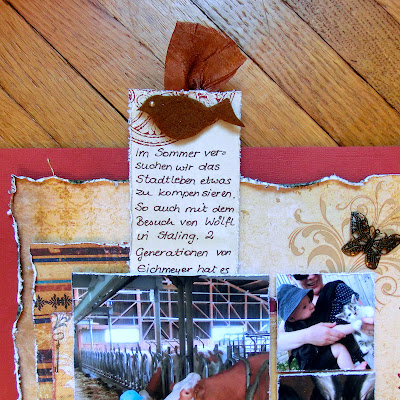 Im Sommer ver-
suchen wir das
Stadtleben etwas
zu kompensieren.
So auch mit dem
Besuch von Wölfl
in Staling. 2
Generationen von
Eichmeyer hat es